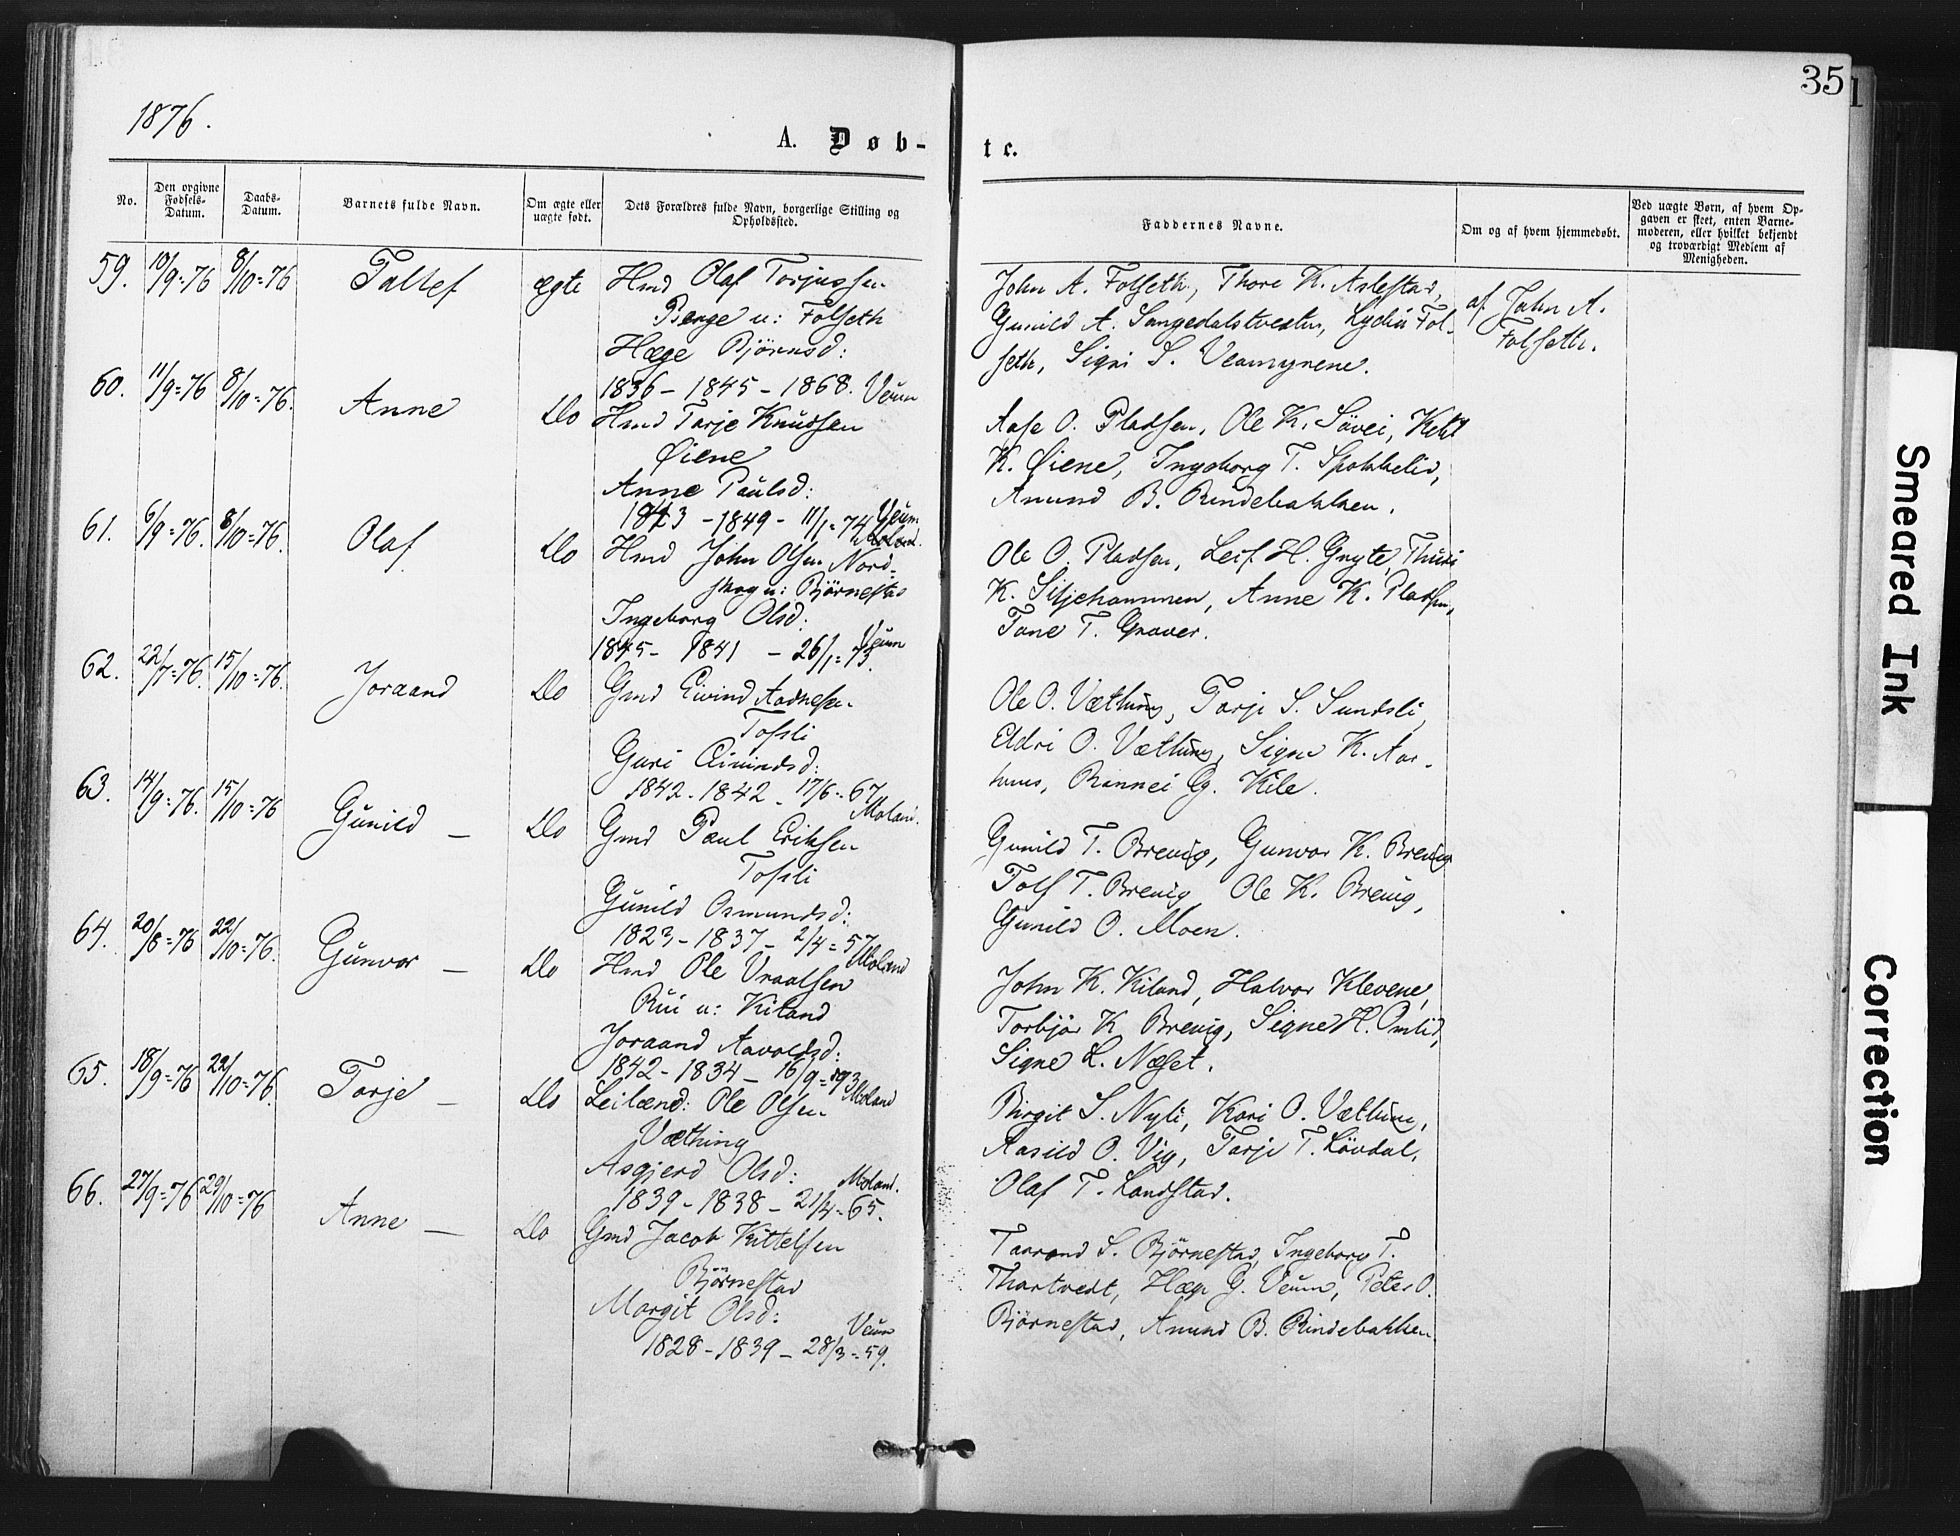 35
1
1876.
A. Døb-
te.
No.
Den opgivne Fødsels-Datum.
Daabs-Datum.
Barnets fulde Navn.
Om ægte eller uægte født.
Dets Forældres fulde Navn, borgerlige Stilling og Opholdssted.
Faddernes Navne.
Om og af hvem hjemmedøbt.
Ved uægte Børn, af hvem Opgaven er skeet, enten Barnemoderen, eller hvilket bekjendt og troværdigt Medlem af Menigheden.
59. 10/9=76 8/10=76 Tallef ægte Hmd Olaf Torjussen
Berge u: Folseth
Hæge Bjørnsd:
1836 - 1845 - 1868. Veum
John A. Folseth, Thore K. Aslestad,
Gunild A. Sangedalstveiten, Lydia Fol-
seth, Signi S. Veamyrene.
af John A.
Folseth.
60. 11/9=76 8/10=76. Anne Do Hmd Tarje Knudsen
Øiene
Anne Paulsd:
1843 - 1849 - 11/1=74 Veum
Aase O. Pladsen, Ole K. Søvei, Ketil
K. Øiene, Ingeborg T. Spokkelid,
Amund B. Rindebakken.
61. 6/9=76. 8/10=76. Olaf Do Moland.
Hmd John Olsen Nord-
skog u: Bjørnestad
Ingeborg Olsd:
1845 - 1841 - 26/1=73. Veum
Ole O. Pladsen, Leif H. Gryte, Thuri
K. Siljehammen, Anne K. Pladsen,
Tone T. Graver.
62. 22/7=76. 15/10=76. Joraand Do Gmd Eivind Aadnesen
Tofsli
Guri Eivindsd:
1842 - 1842 - 17/6=67 Moland.
Ole O. Vætting, Tarje S. Sundsli,
Eldri O. Vætting, Signe K. Aar-
huus, Rannei G. Kile.
63. 14/9=76. 15/10=76 Gunild - Do Gmd Paul Eriksen
Tofsli
Gunild Osmundsd:
1823 - 1837 - 2/4=57 Moland
Gunild T. Brevig, Gunvor K. Brevig
Tolf T. Brevig, Ole K. Brevig,
Gunild O. Moen.
64. 20/8=76 22/10=76. Gunvor - Do Hmd Ole Vraalsen
Rui u: Kiland
Joraand Aavoldsd:
1842 - 1834 - 16/9= Moland
John K. Kiland, Halvor Klevene,
Torbjør K. Brevig, Signe H. Omlid,
Signe L. Næset.
65. 18/9=76 22/10=76. Tarje - Do Leilænd: Ole Olsen
Vætting
Asgjerd Olsd:
1839 - 1838 - 21/4=65. Moland.
Birgit S. Nyli, Kari O. Vætting,
Aasild O. Vig, Tarje T. Løvdal,
Olaf T. Landstad.
66. 27/9=76 29/10=76 Anne - Do Gmd Jacob Kittelsen
Bjørnestad
Margit Olsd:
1828 - 1839 - 28/3=59. Veum
Taarand S. Bjørnestad, Ingeborg T.
Thortvedt, Hæge G. Veum, Peter O.
Bjørnestad, Amund B. Rindebakken
Smeared Ink
Correction